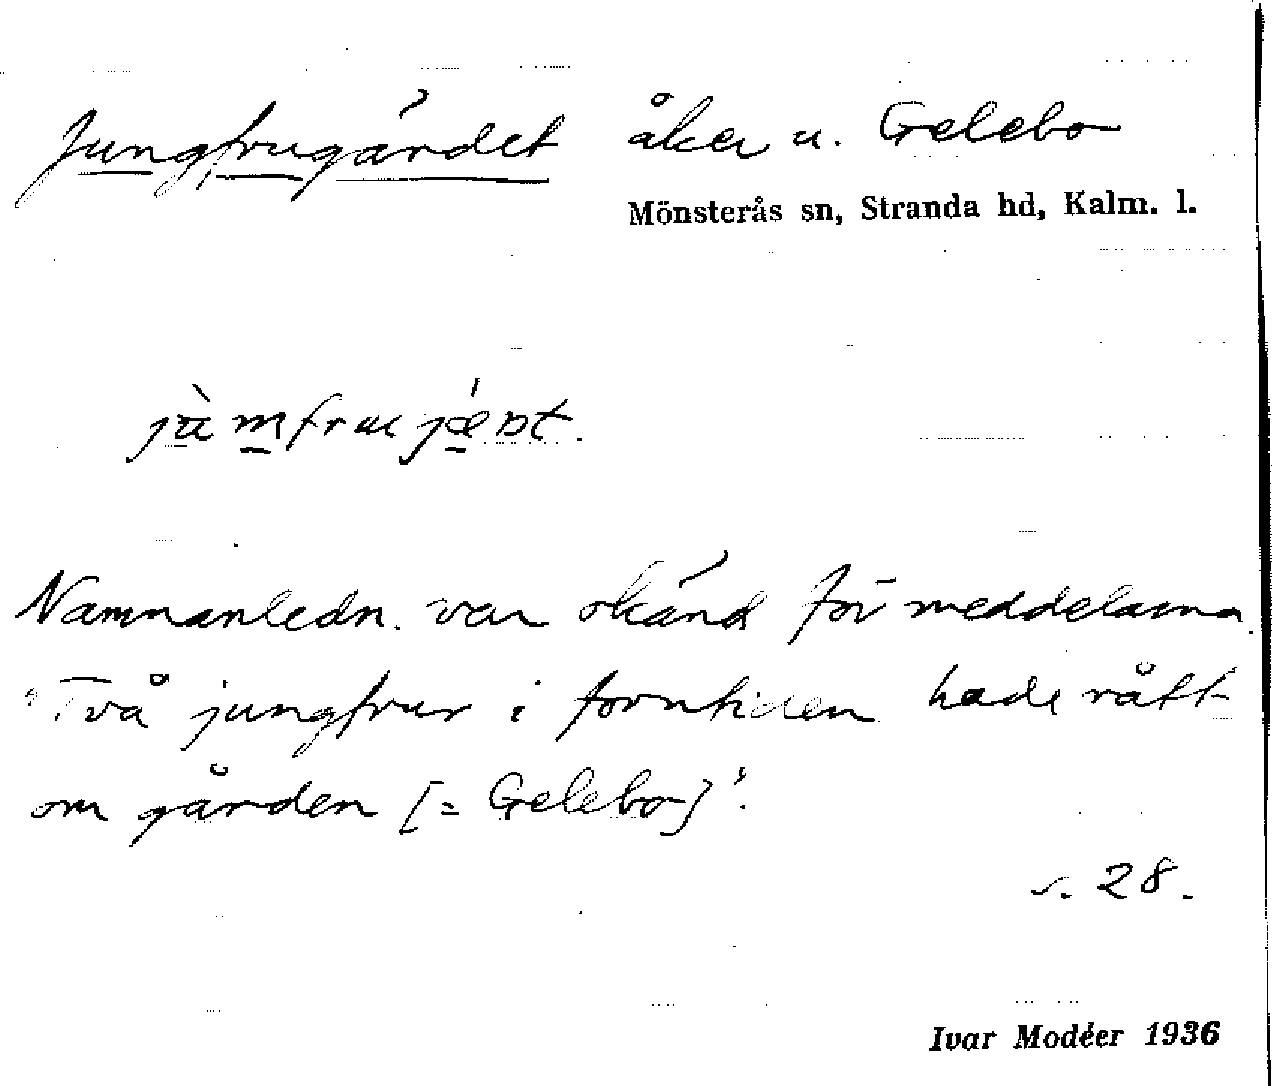 Jungfrugärdet åker u. Gelebo
Mönsterås sn, Stranda hd, Kalm. l.
Namnanledn. var okänd för meddelarna.
"Två jungfrur i forntiden hade rått
om gården [= Gelebo]".
s. 28.
Ivar Modéer 1936